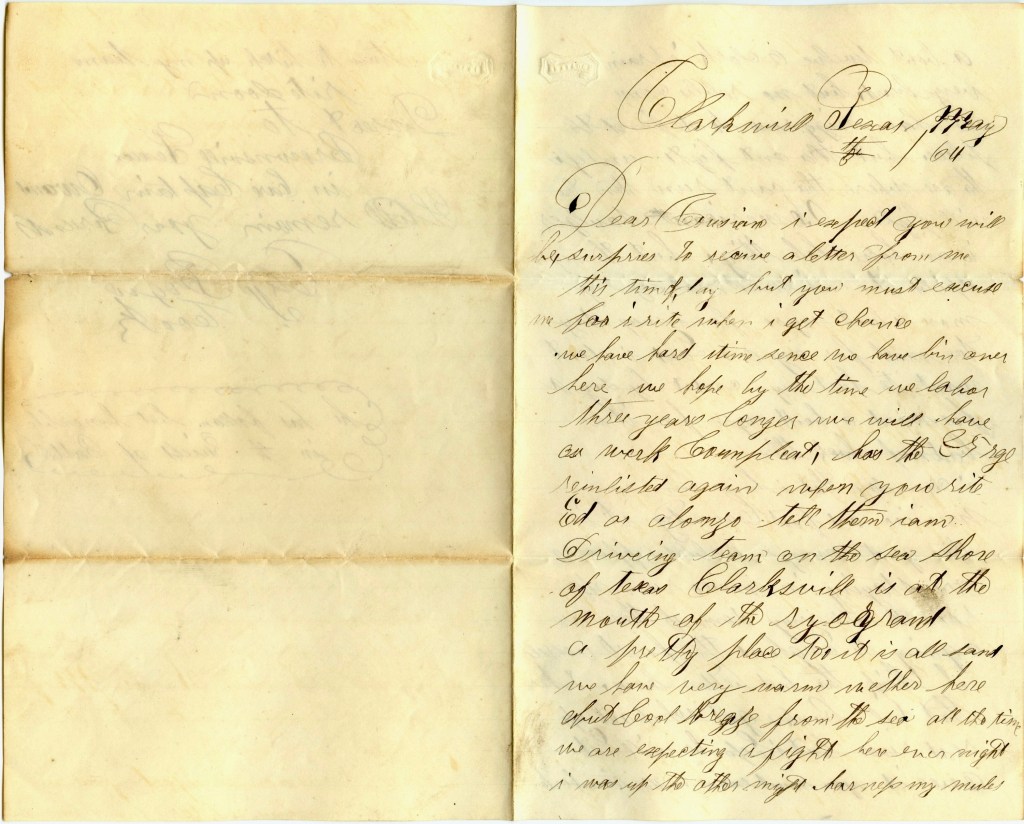 Clarksvill Texas / May
th / 64
Dear Cousian i expect you will
be surpries to recive a letter from me
this time, but you must excuse
me for i rite when i get chance
we have hard time sence we have bin over
here we hope by the time we labor
three years longer we will have
our work Compleat, has the
reinlisted again when you rite
Ed or alonzo tell them i am
Driveing team on the sea Shore
of texas Clarksvill is at the
mouth of the ryo grand
a pretty place it is all sand
we have very warm wether here
but Cool from the sea all the time
we are expecting a fight here ever night
i was up the other night harness my mules